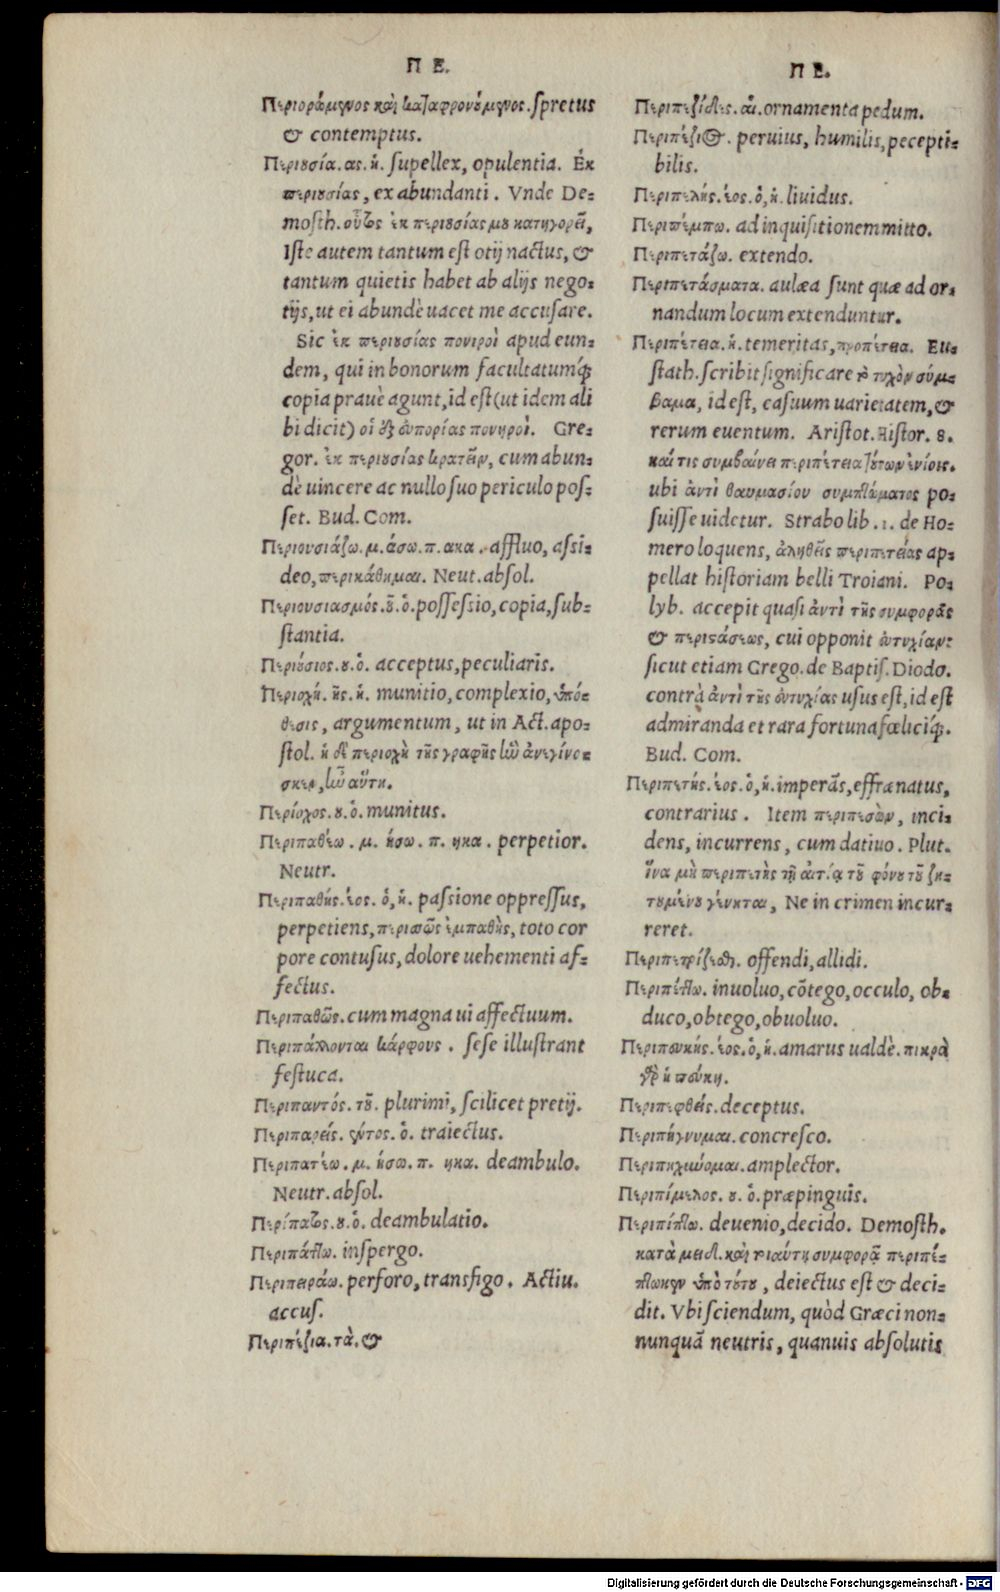 Π Ε.
Περιοράμενος καὶ καταφρονούμενος. spretus
& contemptus.
Περιουσία. ας. ἡ. supellex, opulentia. Ἐκ
περιουσίας, ex abundanti. Vnde De-
mosth. οὗτος ἐκ περιουσίας μου κατηγορεῖ,
Iste autem tantum est otij nactus, &
tantum quietis habet ab alijs nego-
tijs, ut ei abundè uacet me accusare.
Sic ἐκ περιουσίας πονιροὶ apud eun-
dem, qui in bonorum facultatumq́;
copia prauè agunt, id est (ut idem ali
bi dicit) οἱ ἐξ εὐπορίας πονηροὶ. Gre-
gor. ἐκ περιουσίας κρατεῖν, cum abun-
dè uincere ac nullo suo periculo pos-
set. Bud. Com.
Περιουσιάζω. μ. άσω. π. ακα. affluo, assi-
deo, περικάθημαι. Neut. absol.
Περιουσιασμός. οῦ. ὁ. possessio, copia, sub-
stantia.
Περιούσιος. ου. ὁ. acceptus, peculiaris.
Περιοχή. ῆς. ἡ. munitio, complexio, ὑπό-
θεσις, argumentum, ut in Act. apo-
stol. ἡ δὲ περιοχὴ τῆς γραφῆς ἣν ἀνεγίνω-
σκεν, ἦν αὕτη.
Περίοχος. ου. ὁ. munitus.
Περιπαθέω. μ. ήσω. π. ηκα. perpetior.
Neutr.
Περιπαθής. έος. ὁ, ἡ. passione oppressus,
perpetiens, περισσῶς ἐμπαθὴς, toto cor
pore contusus, dolore uehementi af-
fectus.
Περιπαθῶς. cum magna ui affectuum.
Περιπάλλονται κάρφους. sese illustrant
festuca.
Περιπαντός. τοῦ. plurimi, scilicet pretij.
Περιπαρείς. έντος. ὁ. traiectus.
Περιπατέω. μ. ήσω. π. ηκα. deambulo.
Neutr. absol.
Περίπατος. ου. ὁ. deambulatio.
Περιπάττω. inspergo.
Περιπειράω. perforo, transfigo. Actiu.
accus.
Περιπέζια. τὰ. &
Π Ε.
Περιπεζίδες. αἱ. ornamenta pedum.
Περιπέζιος. peruius, humilis, pecepti-
bilis.
Περιπελής. έος. ὁ, ἡ. liuidus.
Περιπέμπω. ad inquisitionem mitto.
Περιπετάζω. extendo.
Περιπετάσματα. aulæa sunt quæ ad or-
nandum locum extenduntur.
Περιπέτεια. ἡ. temeritas, προπέτεια. Eu-
stath. scribit significare τὸ τυχὸν σύμ-
βαμα, id est, casuum uarietatem, &
rerum euentum. Aristot. Histor. 8.
καί τις συμβαίνει περιπέτεια τούτων ἐνίοις.
ubi ἀντὶ θαυμασίου συμπτώματος po-
suisse uidetur. Strabo lib. 1. de Ho-
mero loquens, ἀληθεῖς περιπετείας ap-
pellat historiam belli Troiani. Po-
lyb. accepit quasi ἀντὶ τῆς συμφορᾶς
& περιστάσεως, cui opponit εὐτυχίαν:
sicut etiam Grego. de Baptis. Diodo.
contrà ἀντὶ τῆς εὐτυχίας usus est, id est
admiranda et rara fortuna fœliciq́;.
Bud. Com.
Περιπετής. έος. ὁ, ἡ. imperãs, effrænatus,
contrarius. Item περιπεσὼν, inci-
dens, incurrens, cum datiuo. Plut.
ἵνα μὴ περιπετὴς τῇ αἰτίᾳ τοῦ φόνου τοῦ ζη-
τουμένου γένηται, Ne in crimen incur-
reret.
Περιπετρίζεσθαι. offendi, allidi.
Περιπέττω. inuoluo, cõtego, occulo, ob-
duco, obtego, obuoluo.
Περιπευκής. έος. ὁ, ἡ. amarus ualdè. πικρὰ
γὰρ ἡ πεύκη.
Περιπεφθείς. deceptus.
Περιπήγνυμαι. concresco.
Περιπηχύνομαι. amplector.
Περιπίμελος. ου. ὁ. præpinguis.
Περιπίπτω. deuenio, decido. Demosth.
κατὰ μειδ. καὶ τοιαύτῃ συμφορᾷ περιπέ-
πτωκεν ὑπὸ τούτου, deiectus est & deci-
dit. Vbi sciendum, quòd Græci non-
nunquã neutris, quanuis absolutis
Digitalisierung gefördert durch die Deutsche Forschungsgemeinschaft - DFG